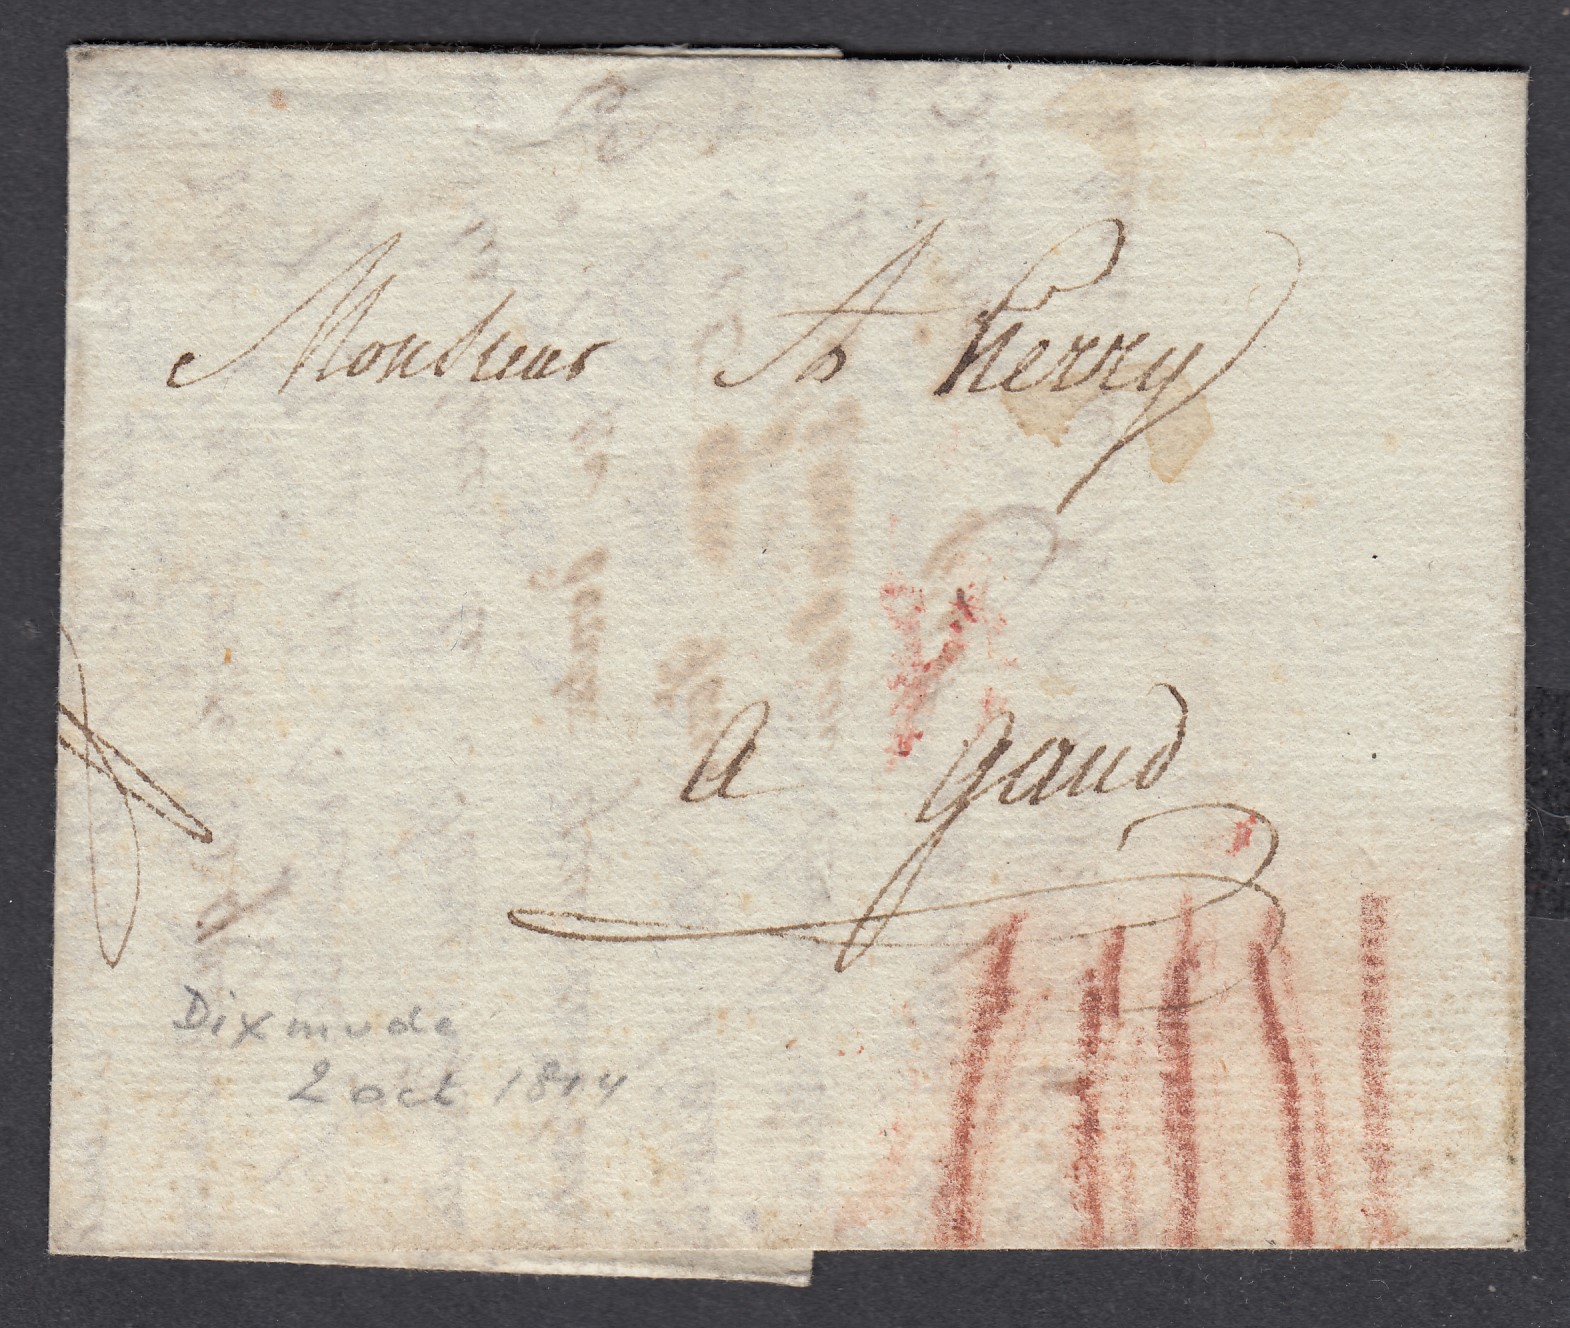 Monsieur Fs Pierry
A gand
Dixmude
2 oct 1814